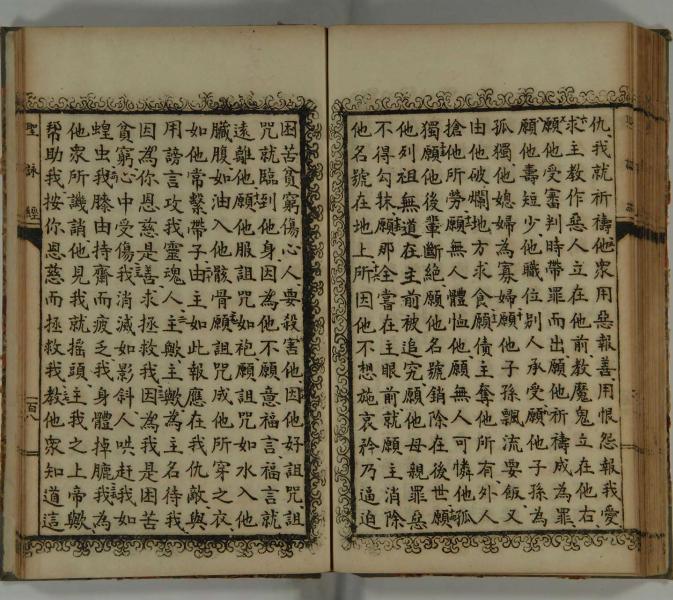 仇我就祈禱他眾用惡報善用恨怨報我愛
求主教作惡人立在他前教魔鬼立在他右
願他受審判時帶罪而出願他祈禱成為罪
願他壽短少他職位別人承受願他子孫為
孤獨他媳婦為寡婦願他子孫飄流要飯又
由他破爛地方求食願債主奪他所有外人
搶他所勞願無人體恤他願無人可憐他孤
獨願他後輩斷絕願他名號銷除在後世願
他列祖無道在主前被追究願他母親罪惡
不得勾抹願那全嘗在主眼前就願主消除
他名號在地上所因他不想施哀矜乃逼迫
困苦貧窮傷心人要殺害他因他好詛咒詛
咒就臨到他身因為他不願意福言福言就
遠離他願他服詛咒如袍願詛咒如水入他
臟腹如油入他骸骨願詛咒成他所穿之衣
如他常繫帶子由主如此報應在我仇敵與
用謗言攻我靈魂人主歟主歟為主名待我
因為你恩慈是善求拯救我因為我是困苦
貧窮心中受傷我消滅如影斜人哄赶我如
蝗虫我膝由持齋而疲乏我身體掉臕我為
他眾所譏誚他見我就搖頭主我之上帝歟
幫助我按你恩慈而拯救我教他眾知道這
聖詠經 一百八